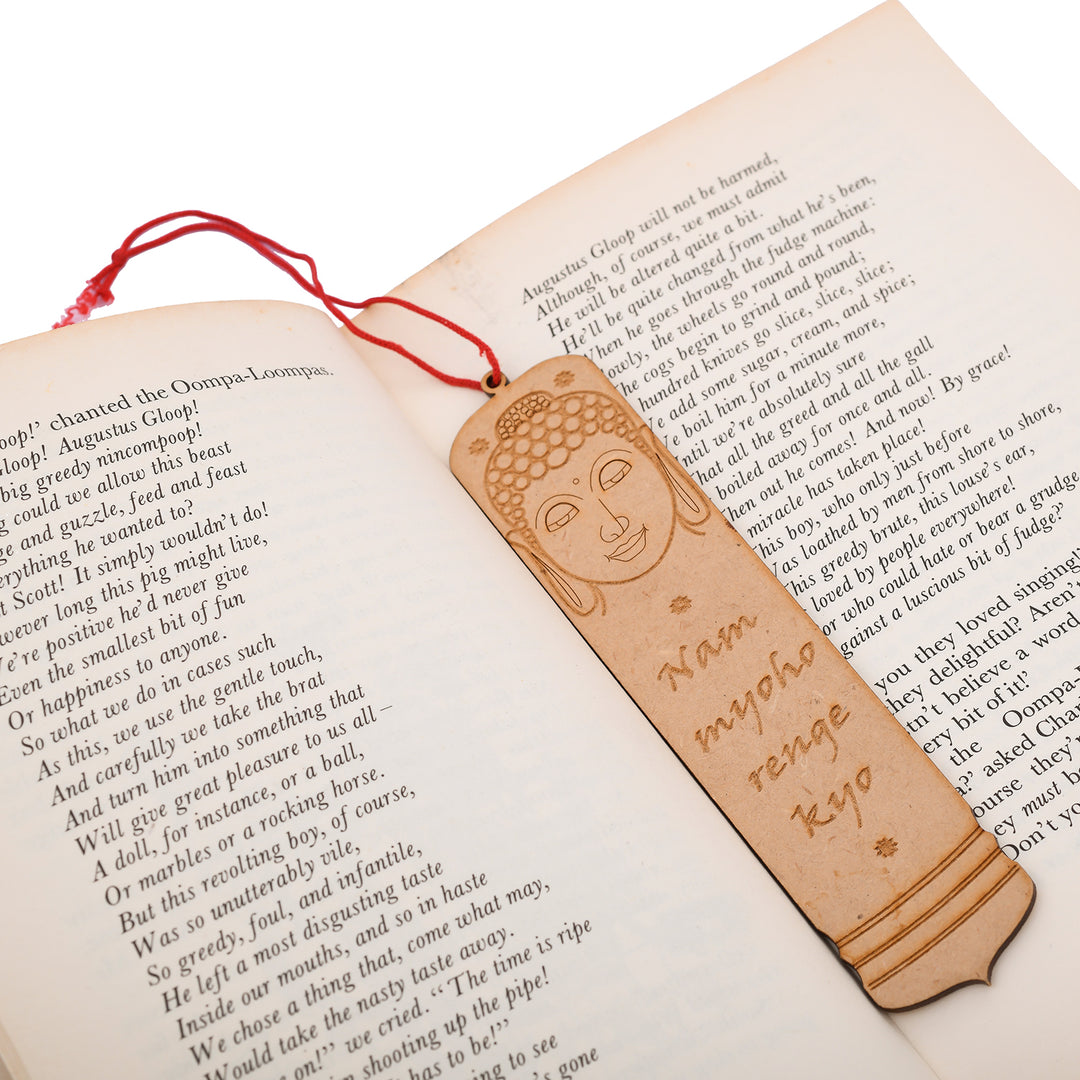 oop!' chanted the Oompa-Loompas.
Gloop! Augustus Gloop!
big greedy nincompoop!
g could we allow this beast
ge and guzzle, feed and feast
erything he wanted to?
t Scott! It simply wouldn't do!
wever long this pig might live,
We're positive he'd never give
Even the smallest bit of fun
Or happiness to anyone.
So what we do in cases such
As this, we use the gentle touch,
And carefully we take the brat
And turn him into something that
Will give great pleasure to us all –
A doll, for instance, or a ball,
Or marbles or a rocking horse.
But this revolting boy, of course,
Was so unutterably vile,
So greedy, foul, and infantile,
He left a most disgusting taste
Inside our mouths, and so in haste
We chose a thing that, come what may,
Would take the nasty taste away.
on!” we cried. “The time is ripe
shooting up the pipe!
has to be!”
ng to see
's gone
Augustus Gloop will not be harmed,
Although, of course, we must admit
He will be altered quite a bit.
He'll be quite changed from what he's been,
When he goes through the fudge machine:
lowly, the wheels go round and round,
The cogs begin to grind and pound;
hundred knives go slice, slice, slice;
e add some sugar, cream, and spice;
e boil him for a minute more,
ntil we're absolutely sure
hat all the greed and all the gall
boiled away for once and all.
hen out he comes! And now! By grace!
miracle has taken place!
his boy, who only just before
as loathed by men from shore to shore,
his greedy brute, this louse's ear,
loved by people everywhere!
or who could hate or bear a grudge
gainst a luscious bit of fudge?'
you they loved singing!
hey delightful? Aren't
dn't believe a word
ery bit of it!'
the Oompa-L
a?' asked Char
ourse they'r
ey must be
Don't yo
Nam
myoho
renge
kyo